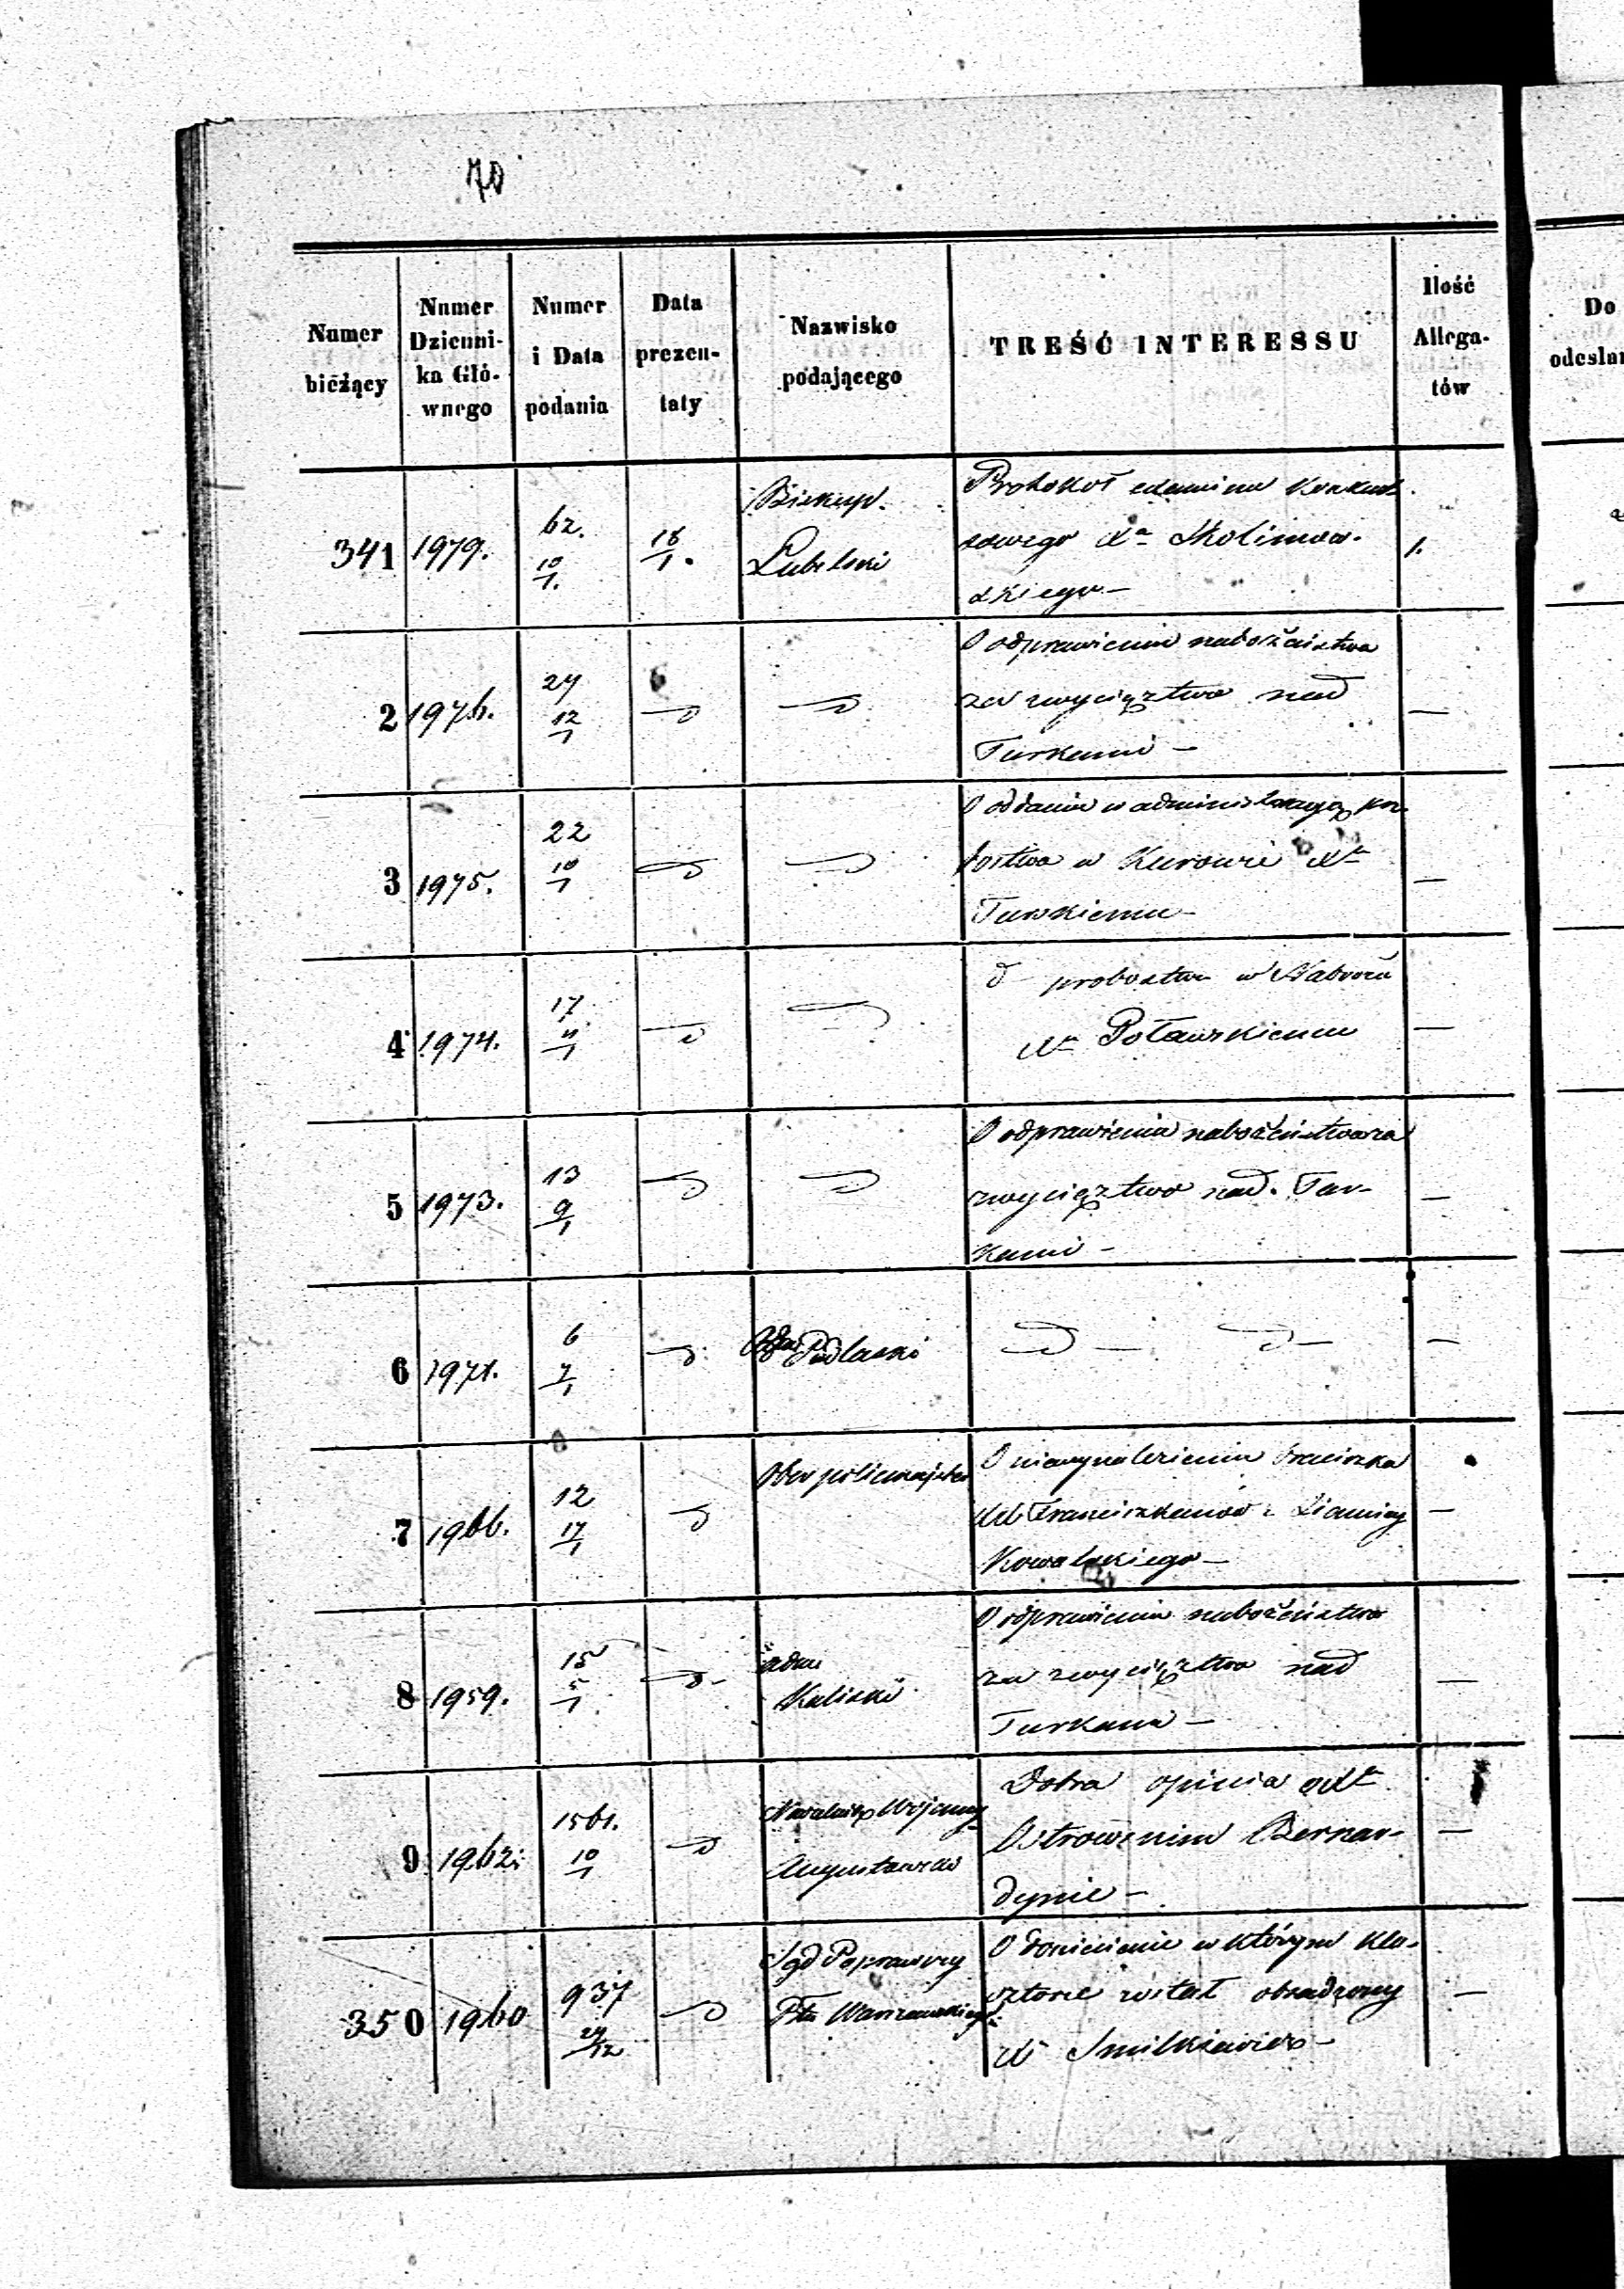 70
Numer bieżący | Numer Dzienni-ka Głó-wnego | Numer i Data podania | Data prezen-taty | Nazwisko podającego | TREŚĆ INTERESSU | Ilość Allega-tów | Do
341 | 1979. | 62. 10/1. | 18/1. | Biskup. Lubelski | Protokół examinu konkur-
sowego Xa Skolimow-
skiego – | 1.
2 | 1976. | 27 12/1 | O odprawieniu nabożeństwa
za zwycięztwo nad
Turkami – | —
3 | 1975. | 22 10/1 | O oddaniu w administracyą pro-
bostwa w Kurowie Xu
Turskiemu – | —
4 | 1974. | 17 /1 | d– probostwa w
Xu Potawskiemu | —
5 | 1973. | 13 9/1 | O odprawieniu nabożeństwa za
zwycięztwo nad Tur-
kami – | —
6 | 1971. | 6 7/1 | Podlaski | —
7 | 1966. | 12 17/1 | Ober policmajster | O niewynalezieniu braciszka
Franciszkanów
Kowalskiego – | —
8 | 1959. | 15 5/1 | Adm
Kaliski | O odprawieniu nabożeństwa
za zwycięztwo nad
Turkami – | —
9 | 1962. | 1561. 10/1 | Naczelnik Wojenny
Augustowski | Dobra opinia o Xu
Ostrowskim Bernar-
dynie – | —
350 | 1960 | 937 29/12 | Sąd Poprawczy
Ptu Warszawskiego | O doniesienie w którym kla-
sztorze został osadzony
X Smilkiewicz – | —